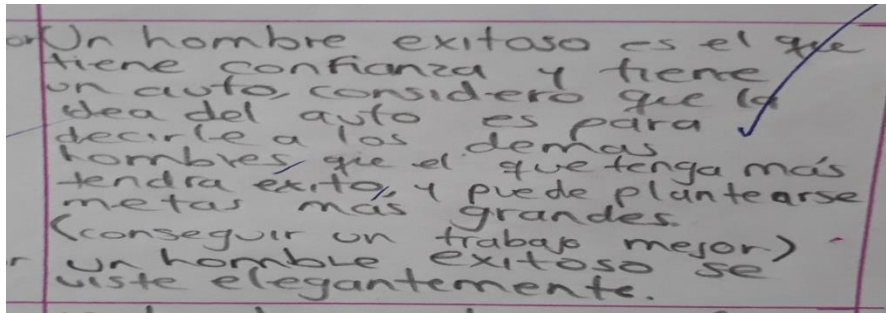 or Un hombre exitoso es el que
tiene confianza y tiene
un auto, considero que la
idea del auto es para
decirle a los demas
hombres que el que tenga más
tendra exito, y puede plantearse
metas más grandes.
(conseguir un trabajo mejor)
r un hombre exitoso se
viste elegantemente.